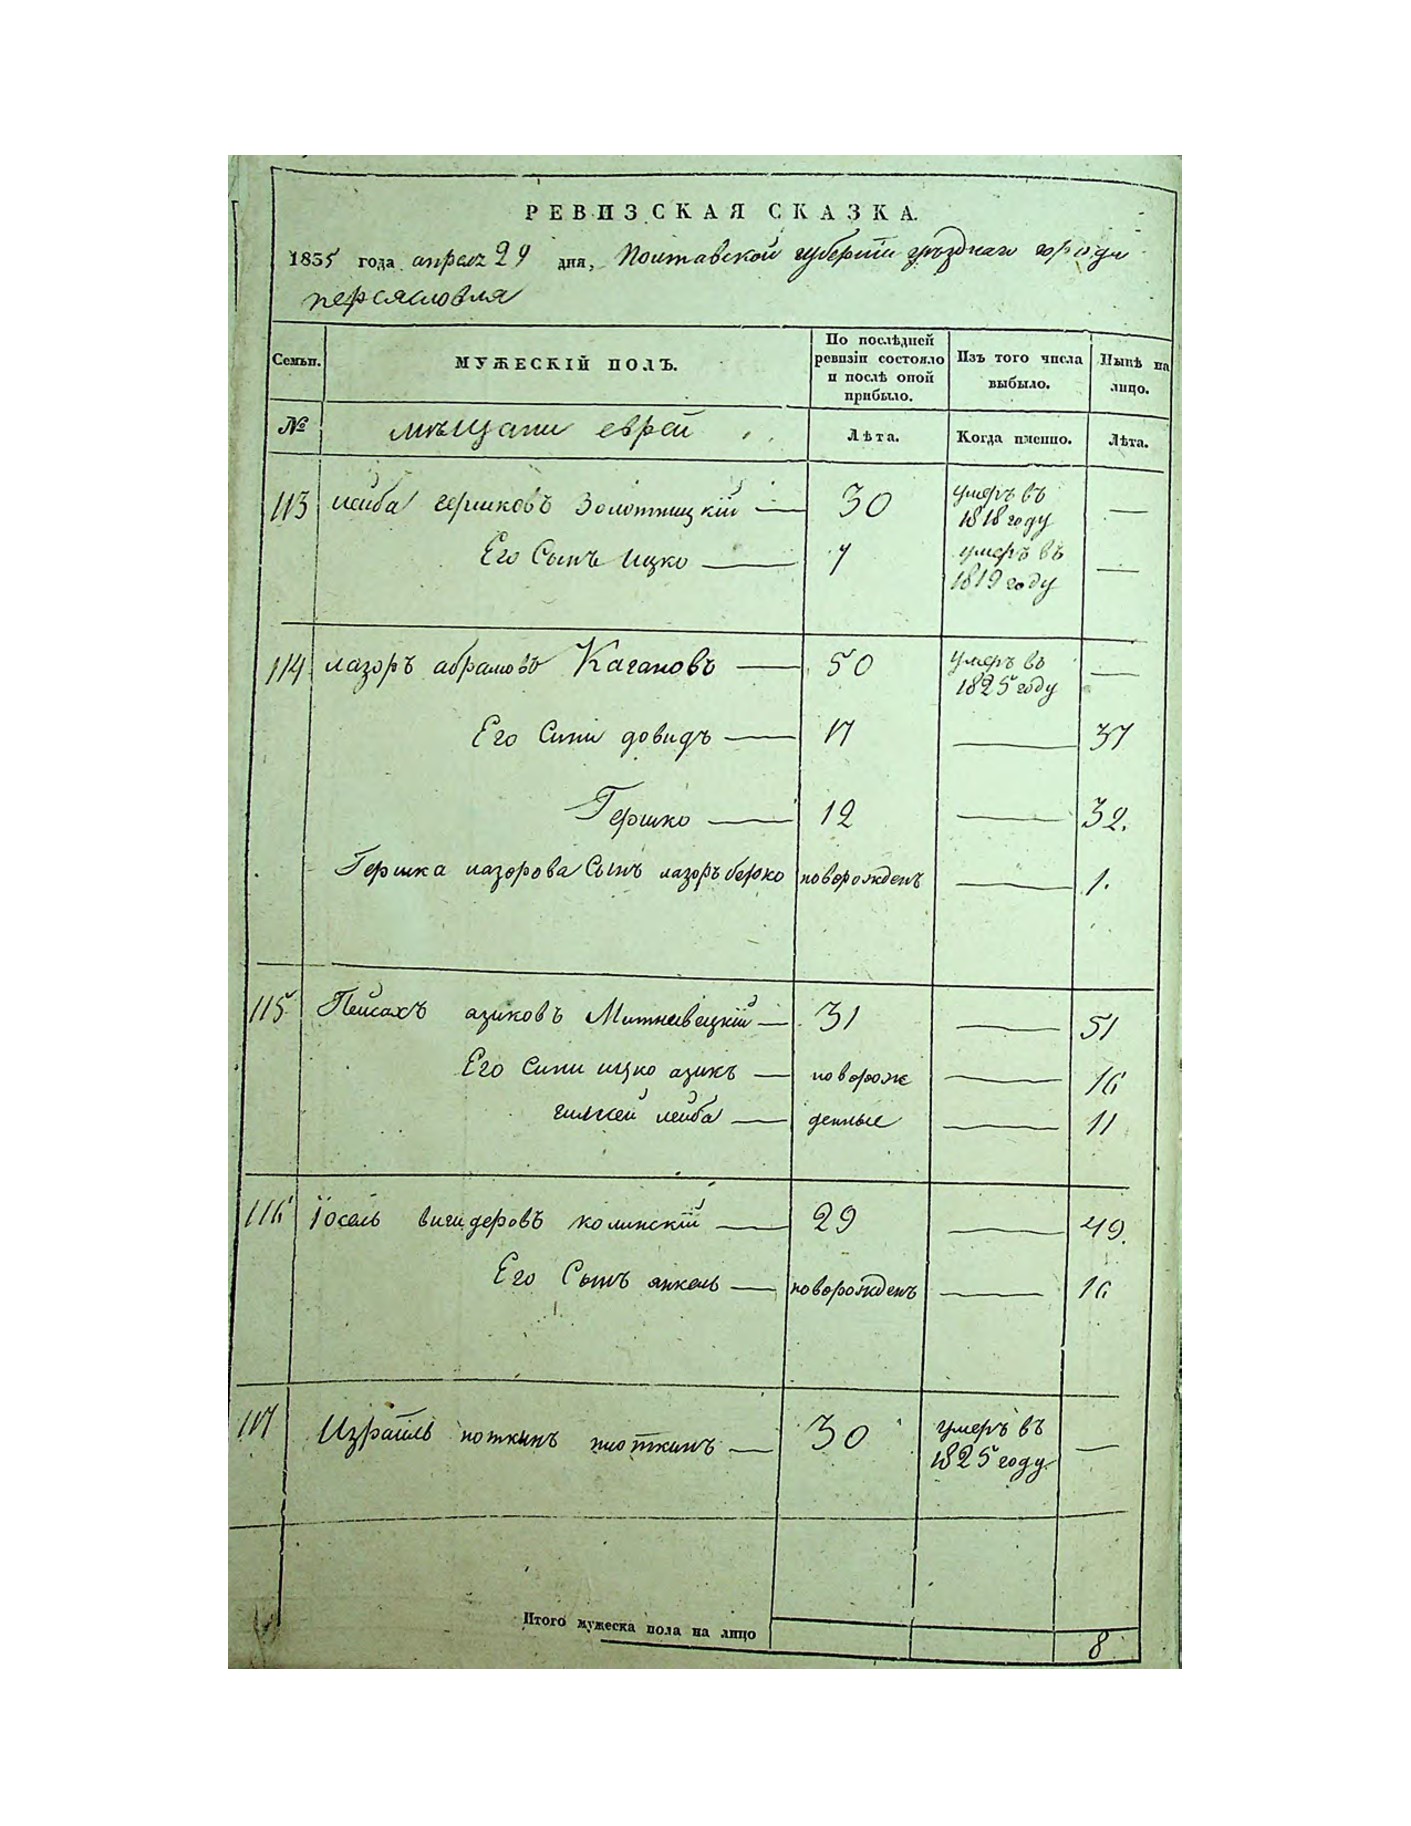 РЕВИЗСКАЯ СКАЗКА.
1835 года апреля 29 дня, Полтавской губернии уѣзднаго города
переяславля
Семьи. МУЖЕСКІЙ ПОЛЪ. По послѣдней ревизіи состояло и послѣ оной прибыло. Изъ того числа выбыло. Нынѣ на лицо.
№ мѣщани еврей Лѣта. Когда именно. Лѣта.
113 лейба гершковъ Золотницкій — 30 умеръ въ 1818 году —
Его Сынъ ицко — 7 умеръ въ 1819 году —
114 лазоръ абрамовъ Кагановъ — 50 умеръ въ 1825 году —
Его Сини довидъ — 17 — 37
Гершко — 12 — 32.
Гершка лазорова Сынъ лазоръ берко новорожденъ — 1.
115 Пейсахъ азиковъ — 31 — 51
Его Сини ицко азикъ — новорож — 16
лейба — денные — 11
116 Іосель колинскій — 29 — 49.
Его Сынъ янкель — новорожденъ — 16
117 Израиль ноткинъ плоткинъ — 30 умеръ въ 1825 году —
Итого мужеска пола на лицо 8